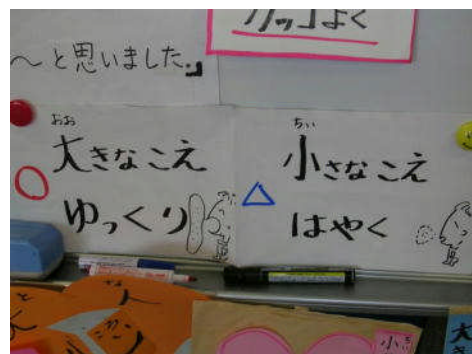 カッコよく
〜と思いました。」
おお
大きなこえ
ゆっくり
ちい
小さなこえ
はやく
小
大